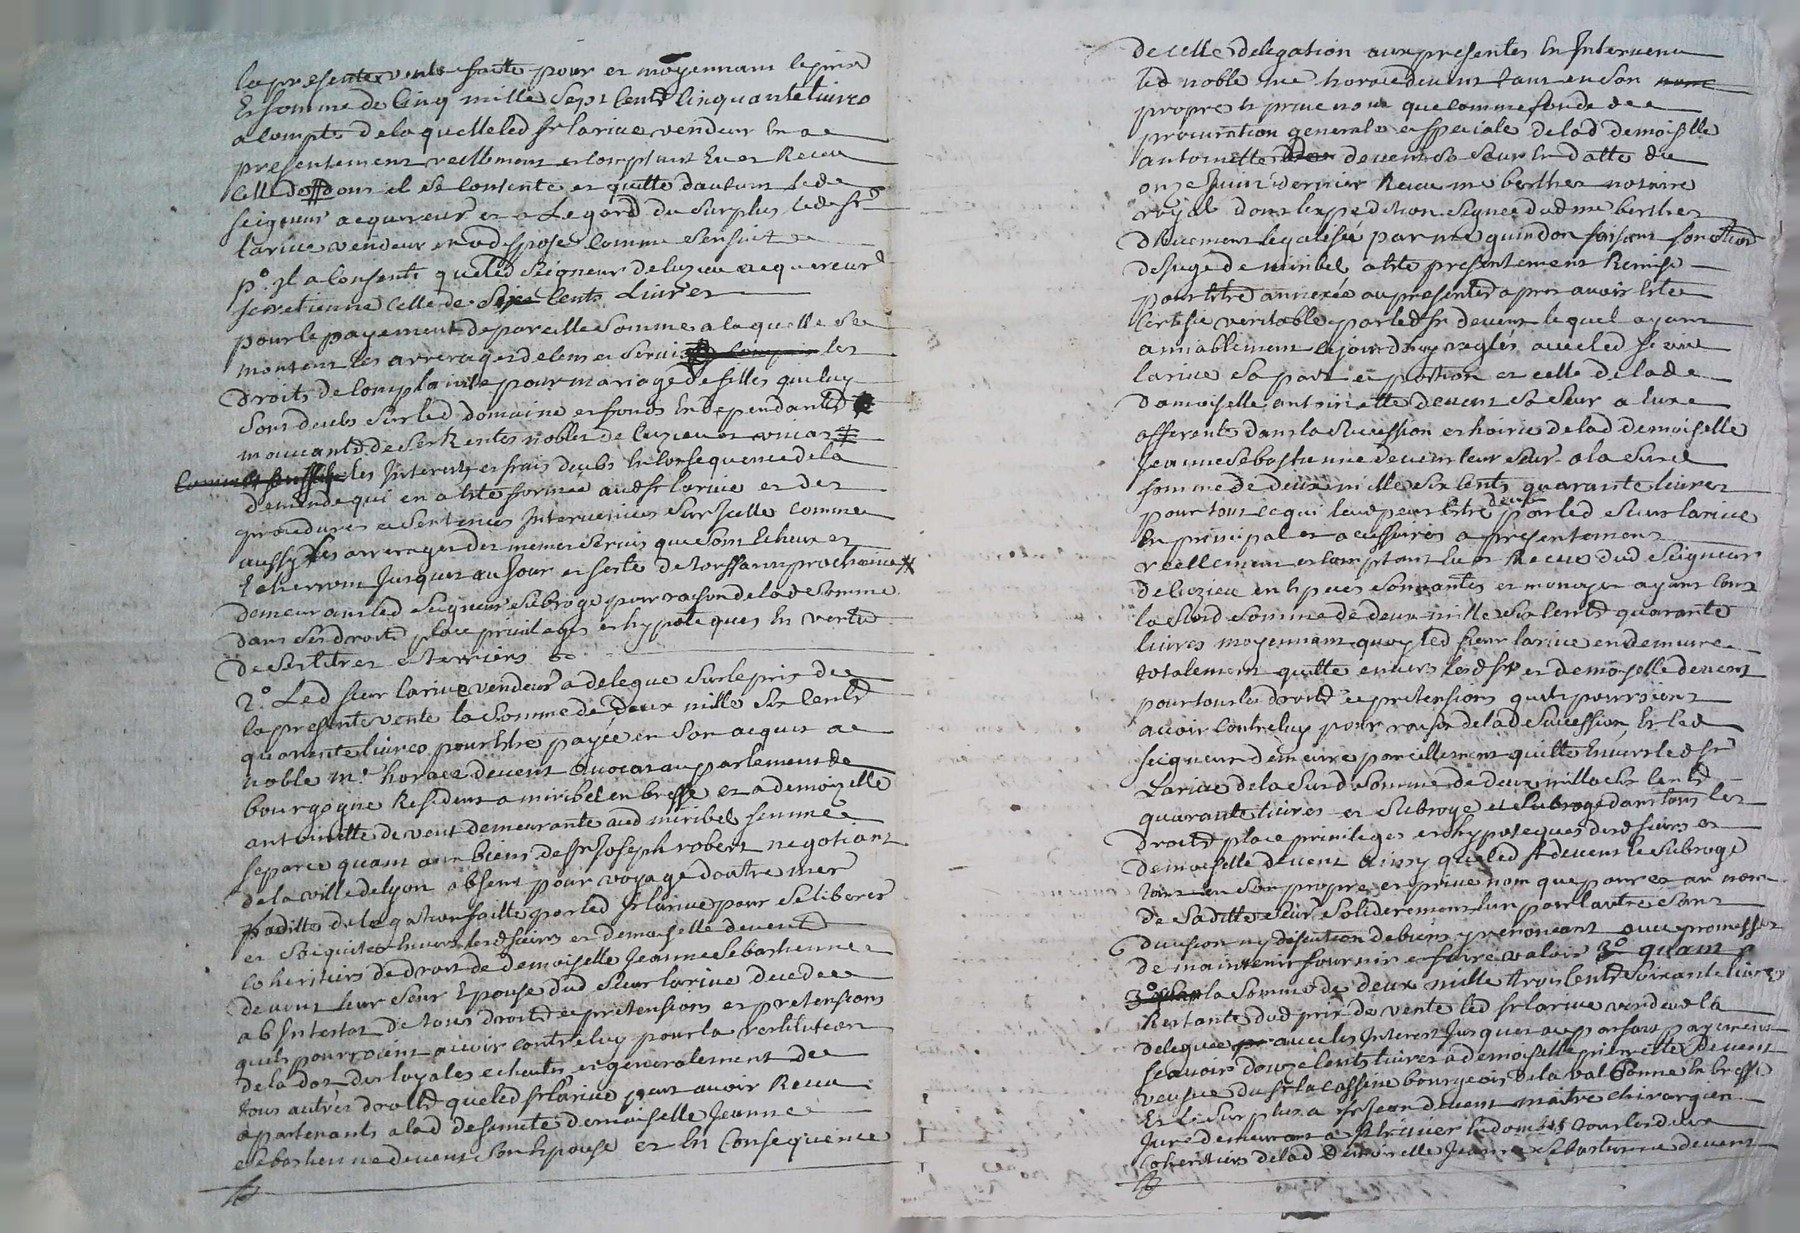 la presente vente faite pour et moyennant le prix
Et somme de Cinq mille Sept Cent Cinquante livres
a compte de laquelle led sr larive vendeur en a
presentement reellement et comptant Eu et Receu
celle de dont il se contente et quitte d'autant led
seigneur acquereur et a Legard du surplus led sr
larive vendeur en a dispose comme sensuit
p.o Il a Consenti que led Seigneur deluzieu acquereur
se retienne celle de Six Cents Livres
pour le payement de pareille somme a laquelle se
montent les arrerages de cens et servis les
droits de complainte pour mariage de filles que luy
sont deubs sur led domaine et fonds en dependants
mouvants de ses Rentes nobles de luzieu et
les Interets et frais deubs En Consequence de la
demande qui en a ete formée aud sr larive et des
procedures et Sentences Intervenues sur Icelle comme
aussy les arrerages des memes servis que sont Echeus et
Echerront Jusques au Jour et feste de toussaint prochaine
demeurant led Seigneur Subrogé pour raison de lad somme
dans ses droits place privileges et hypoteques En vertu
de ses titres et terriers
2.o Led sieur larive vendeur a delegue sur le prix de
la presente vente la somme de deux mille six Cents
quarante livres pour Etre payée en son acquit a
noble m.e horace devent avocat au parlement de
bourgogne Resident a miribel en bresse et a demoiselle
antoinette devent demeurante aud miribel femme
separée quant aux biens de sr Joseph robert negotiant
de la ville de lyon absent pour voyage doutre mer
laditte delegation faitte par led sr larive pour se liberer
et saquiter Envers lesd sieurs et demoiselle devent
coheritiers de droit de demoiselle Jeanne Sebastienne
devent leur seur Epouse dud sieur larive decedée
ab Intestat de tous droits et pretensions
quils pourroient avoir contre luy pour la restitution
de la dot des loyales echeutes et generalement de
tous autres droits que led sr larive peut avoir Receu
apartenants a lad defunte demoiselle Jeanne
Sebastienne devent son Epouse et En Consequence
de celle delegation aux presentes En Intervenu
led noble me horace devent tant en son
propre et privé nom que comme fondé de
procuration generale et speciale de lad demoiselle
antoinette devent sa seur En datte du
onze Juin dernier Receu me berthet notaire
royal dont lexpedition signée dud me berthet
Duement legalisée par me guindon faisant fonction
de Juge de miribel a ete presentement Remise
pour Etre annexée au presentes apres avoir Ete
Certifié veritable par led sr devent lequel ayant
amiablement cejourdhuy reglés avec led sieur
larive sa part et portion et celle de lad
demoiselle antoinette devent sa seur a luxe
afferente dans la succession et hoirie de lad demoiselle
Jeanne Sebastienne devent leur seur a la susd
somme de deux mille six Cents quarante livres
pour tout ce qui leur peut Etre deub par led sieur larive
En principal et accessoires a presentement
reellement et comptant Eu et Receu dud Seigneur
de luzieu en Especes sonnantes et monoyer ayant Cours
la susd somme de deux mille six Cents quarante
livres moyennant quoy led sieur larive en demeure
totalement quitte envers lesd sr et demoiselle devent
pour tous les droits et pretensions quils pourroient
avoir contre luy pour raison de lad succession Et led
seigneur demeure pareillement quitte Envers led sr
Larive de la susd somme de deux mille six Cents
quarante livres et subrogé et subrogé dans tous les
Droits place privileges et hypoteques desd sieurs et
demoiselle devent ainsy que led sr devent le subroge
tant en son propre et privé nom que pour et au nom
de saditte seur solidairement lun pour lautre sans
division ny discution de biens y renoncant avec promesses
de maintenir fournir et faire valoir 3.o quant a
la somme de deux mille trois Cents soixante livres
Restante dud prix de vente led sr larive vendeur la
deleguée avec les Interest Jusques au parfait payement
scavoir douze Cents livres a demoiselle pierrette devent
veufve du sr lacassine bourgeois de la valbonne en bresse
Et le surplus a sr Jean devent maitre chirurgien
Juré demeurant a St trivier en dombes tous les deux
coheritiers de lad Demoiselle Jeanne Sebastienne devent